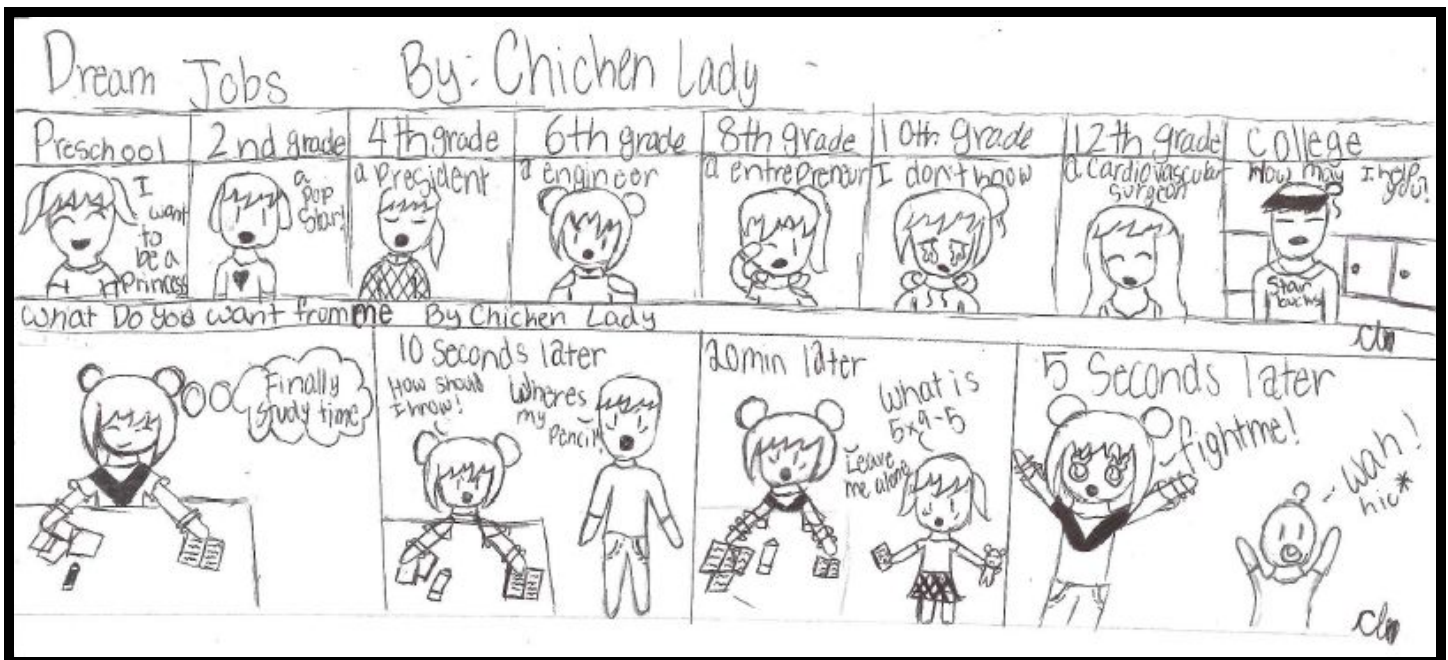 Dream Jobs By: Chichen Lady
Preschool
I
want
to
be a
Princess
2nd grade
a
pop
Star!
4th grade
a President
6th grade
a engineer
8th grade
a entrepreneur
10th grade
I don't know
12th grade
a Cardiovascular
surgeon
College
How may I help
you?
Star
bucks
What Do you want from me By Chicken Lady
Clm
Finally
study time
10 Seconds later
How should
I know!
Wheres
my
Pencil!
20min later
What is
5x9-5
Leave
me alone
5 Seconds later
fight me!
Wah!
hic*
Clm